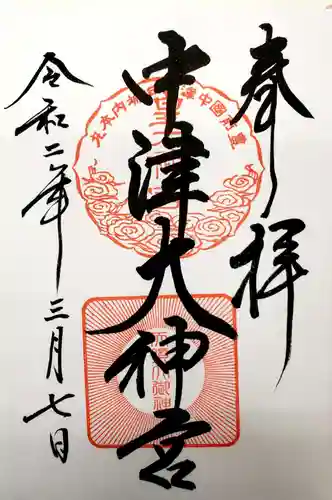 奉拝
中津大神宮
令和二年三月七日